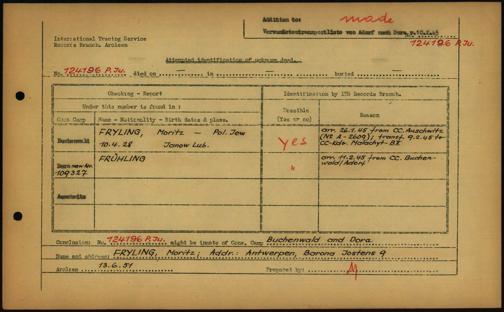 Addition to: made
Verwundetentransportliste von Adorf nach Dora, v.10.2.45
124196 P.Ju.
International Tracing Service
Records Branch, Arolsen
Attempted identification of unknown dead.
No. 124196 P.Ju. died on — in — buried —
Checking - Report
Identification by ITS Records Branch.
Under this number is found in :
Possible (Yes or no)
Reason
Conc Camp
Name - Nationality - Birth dates & place.
Buchenwald
FRYLING, Moritz - Pol. Jew
10.4.28 Janow Lub.
yes
arr. 26.1.45 from CC. Auschwitz
(N2 A - 2609); transf. 9.2.45 to
CC-Kdr. Malachyt- BII
Dora new Nr.
109327
FRÜHLING
"
arr. 11.2.45 from CC. Buchen-
wald/Adorf.
Auschwitz
Conclusion: No. 124196 P.Ju. might be inmate of Conc. Camp Buchenwald and Dora.
Name and address: FRYLING, Moritz; Addr.: Antwerpen, Barona Jostens 9
Arolsen 13.6.51 Prepared by: